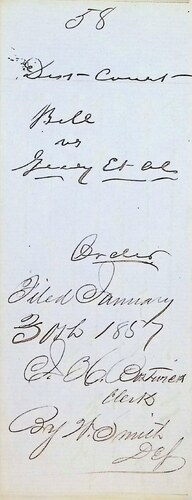 58
Dist Court
Bell
vs
Geary Et al
Order
Filed January
30th 1857
Clerk
By W. Smith
Dep